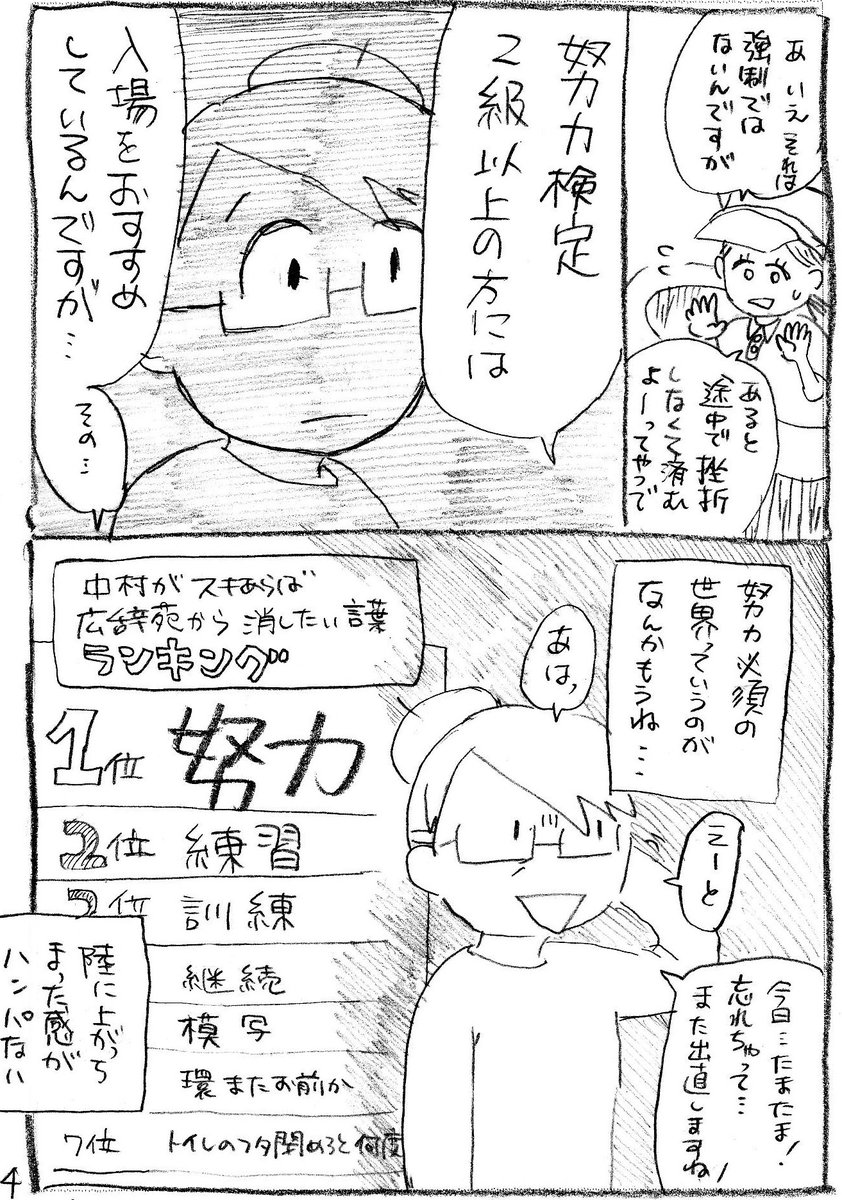 あ いえ それは
強制では
ないんですが
あると
途中で挫折
しなくて済む
よーってやつで
努力検定
2級以上の方には
入場をおすすめ
しているんですが…
その…
努力必須の
世界っていうのが
なんかもうね…
あは、
えーと
今日…たまたま!
忘れちゃって…
また出直しますね!
中村がスキあらば
広辞苑から消したい言葉
ランキング
1位 努力
2位 練習
3位 訓練
継続
模写
環またお前か
7位 トイレのフタ閉めろと何度
陸に上がっち
まった感が
ハンパない
4